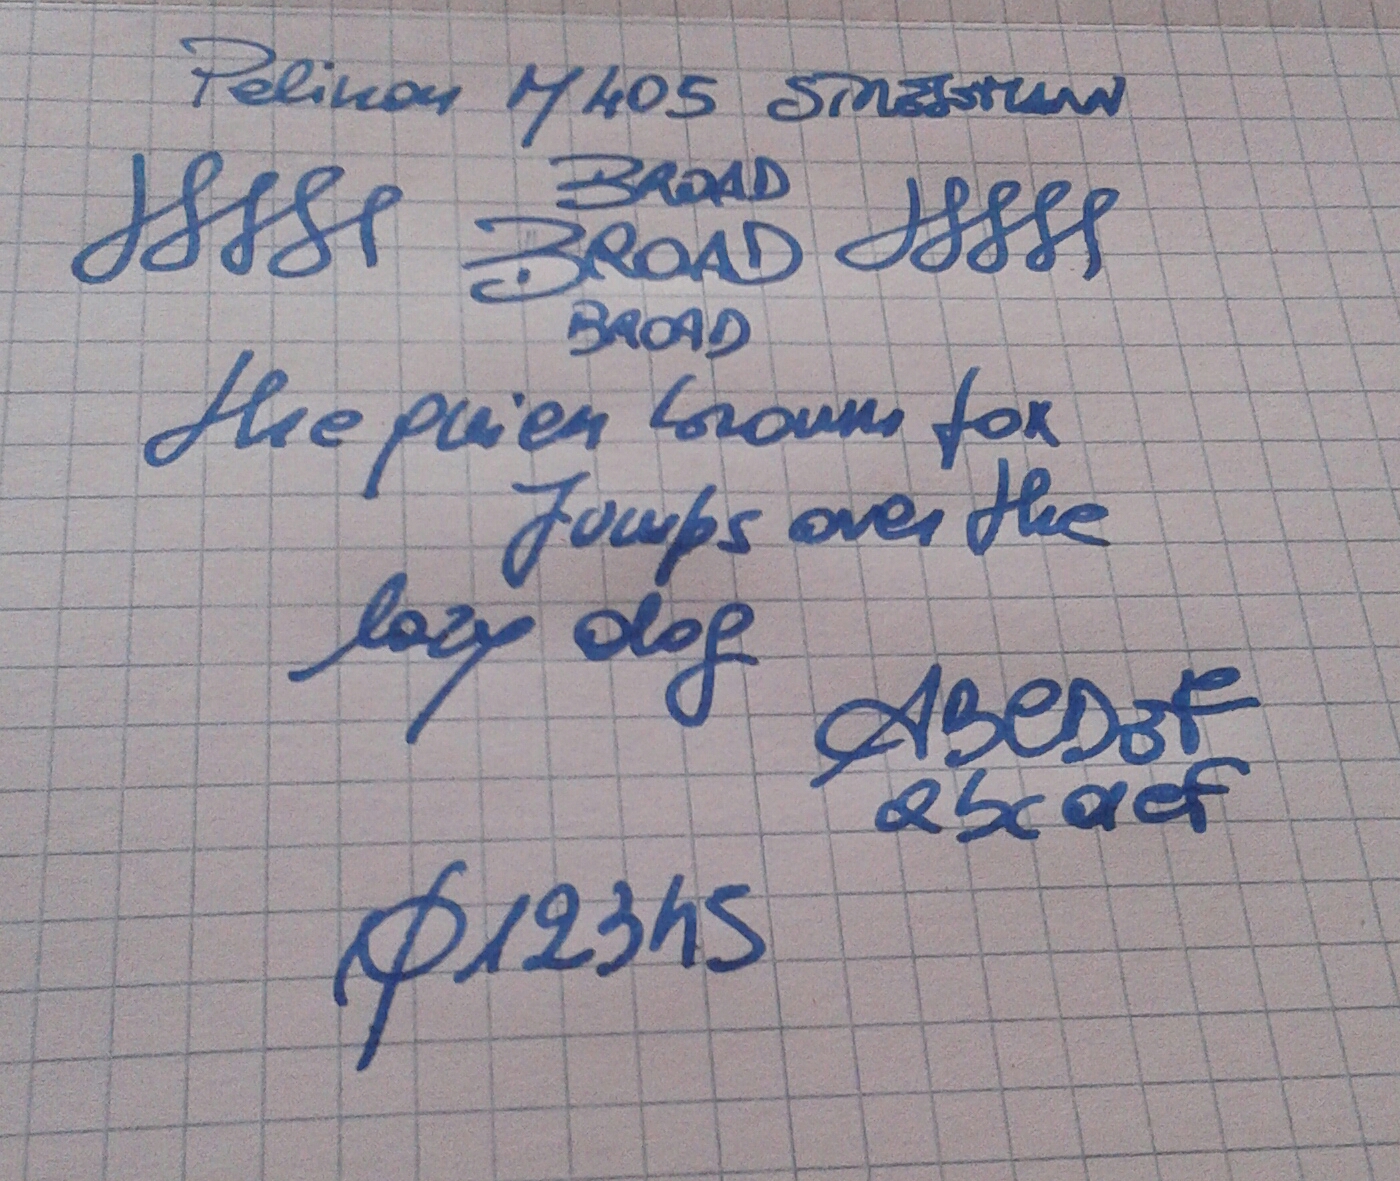 Pelikan M405 STRESEMANN
BROAD
BROAD
BROAD
the quick brown fox
Jumps over the
lazy dog
ABCDEF
abcdef
012345